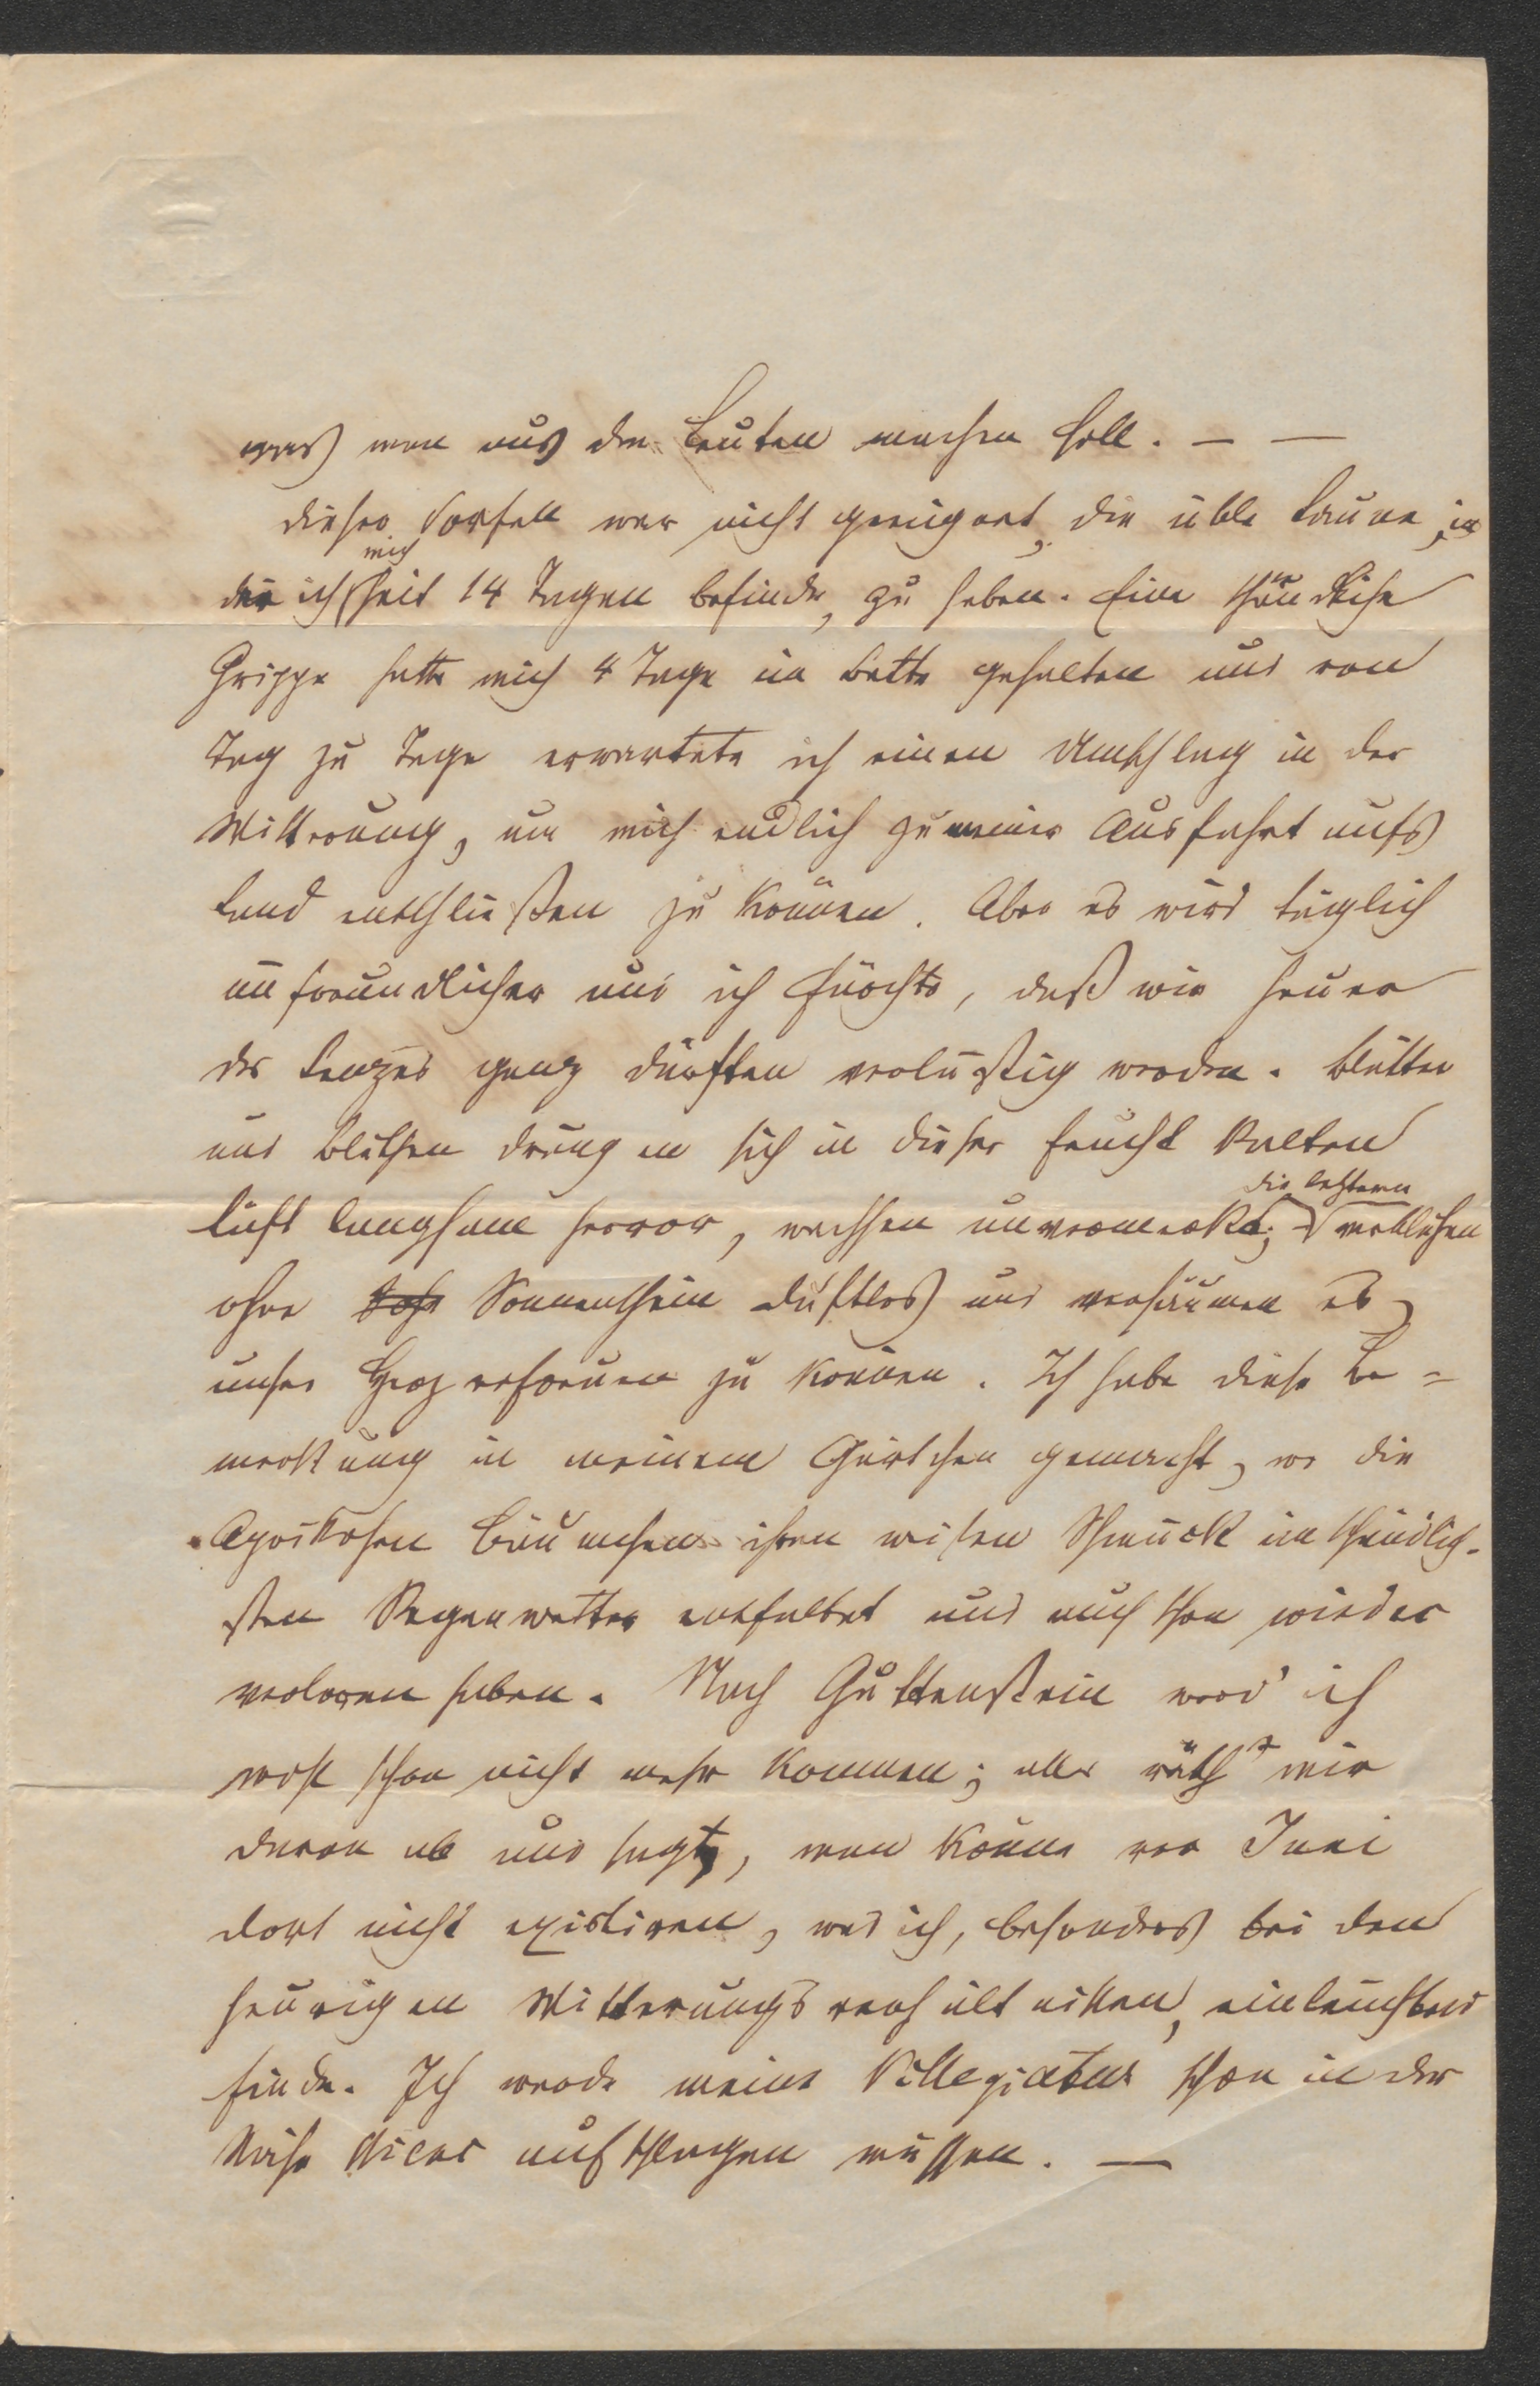 was man aus den Leuten machen soll. – —
Dieser Vorfall war nicht geeignet, die üble Laune, in
der ich mich seit 14 Tagen befinde, zu heben. Eine schändliche
Grippe hatte mich 4 Tage im Bette gehalten und von
Tag zu Tage erwartete ich einen Umschlag in der
Witterung, um mich endlich zu meiner Ausfahrt aufs
Land entschließen zu können. Aber es wird täglich
unfreundlicher und ich fürchte, daß wir heuer
des Lenzes ganz dürften verlustig werden. Blätter
und Blüthen drängen sich in dieser feucht kalten
Luft langsam hervor, wachsen unvermerkt; die letztern verblühen
ohne Sonnenschein duftlos und versäumen es,
unser Herz erfreuen zu können. Ich habe diese Be=
merkung in meinem Gärtchen gemacht, wo die
Aprikosen Bäumchen ihren weißen Schmuck im schändlich-
sten Regenwetter entfaltet und auch schon wieder
verloren haben. Nach Guttenstein werd' ich
wohl schon nicht mehr kommen; alles räth mir
davon ab und sagt, man könne vor Juni
dort nicht existiren, was ich, besonders bei den
heurigen Witterungsverhältnissen, einleuchtend
finde. Ich werde meine Villegiatur schon in der
Nähe Wiens aufschlagen müssen. —